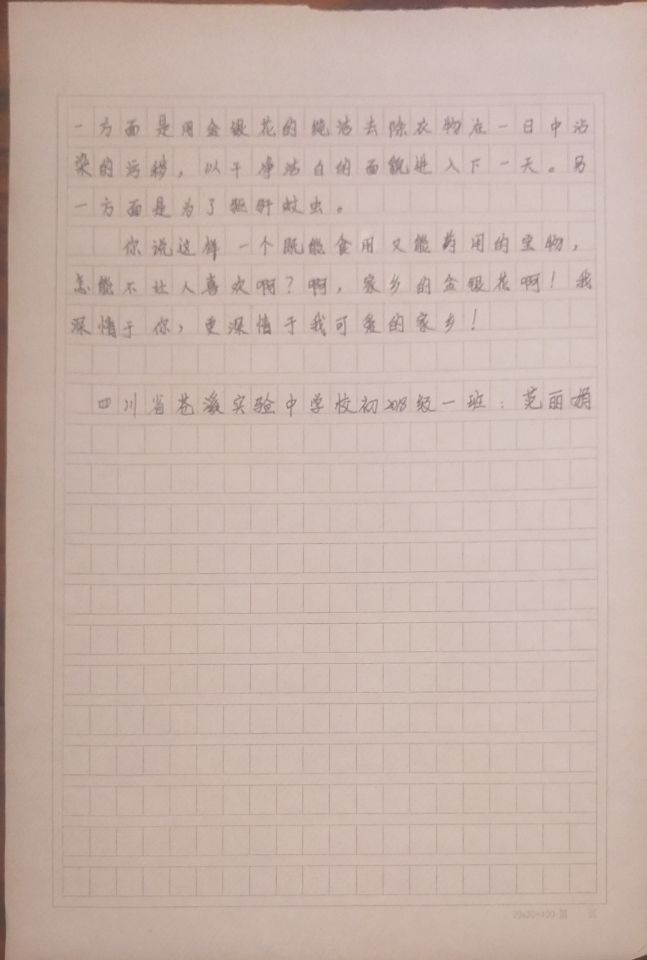 一方面是用金银花的纯洁去除衣物在一日中沾
染的污秽，以干净洁白的面貌进入下一天。另
一方面是为了驱蚊虫。
你说这样一个既能食用又能药用的宝物，
怎能不让人喜欢啊？啊，家乡的金银花啊！我
深情于你，更深情于我可爱的家乡！
四川省苍溪实验中学校初2018级一班：范丽娟
20x20=400 第 页